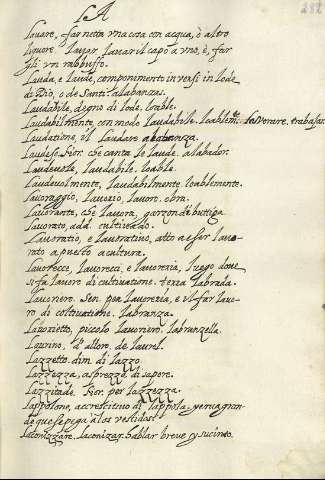 LA
282
Lavare, far netta una cosa con acqua, ò altro
liquore. lavar. lavar il capo a uno, è, far
gli un rabbuffo.
Lauda, e laude, componimento in versi in lode
di Dio, o de Santi. alabanzas.
Laudabile, degno di lode. loable.
Laudabilmente, con modo laudabile. loablemte. Lavorare, trabajar.
Laudatione, il laudare alabanza.
Laudese. Fior. che canta le laude. alabador.
Laudevole, laudabile. loable.
Laudevolmente, laudabilmente. loablemente.
Lavoraggio, lavorio, lavor. obra.
Lavorante, che lavora, garzon di buttiga
Lavorato, add. cultivado.
Lavoratio, e lavorativo, atto a esser lavo-
rato a puesto a cultura.
Lavorecce, lavorecci, e lavorezia, luogo dove
si fa lavoro di cultivatione. tierra labrada.
Lavoriero. Sen. per lavorezia, e il far lavo-
ro di coltivatione. labranza.
Lavorietto, piccolo lavoriero. labranzella.
Laurino, d'alloro. de laurel.
Lazzetto. dim. di lazzo.
Lazzezza, asprezza di sapore.
Lazzitade. Fior. per lazzezza.
Lappolone, accrescitivo di lappola. yerva gran-
de que se pega a los vestidos.
Laconizzare. laconizar. hablar breve y sucinto.